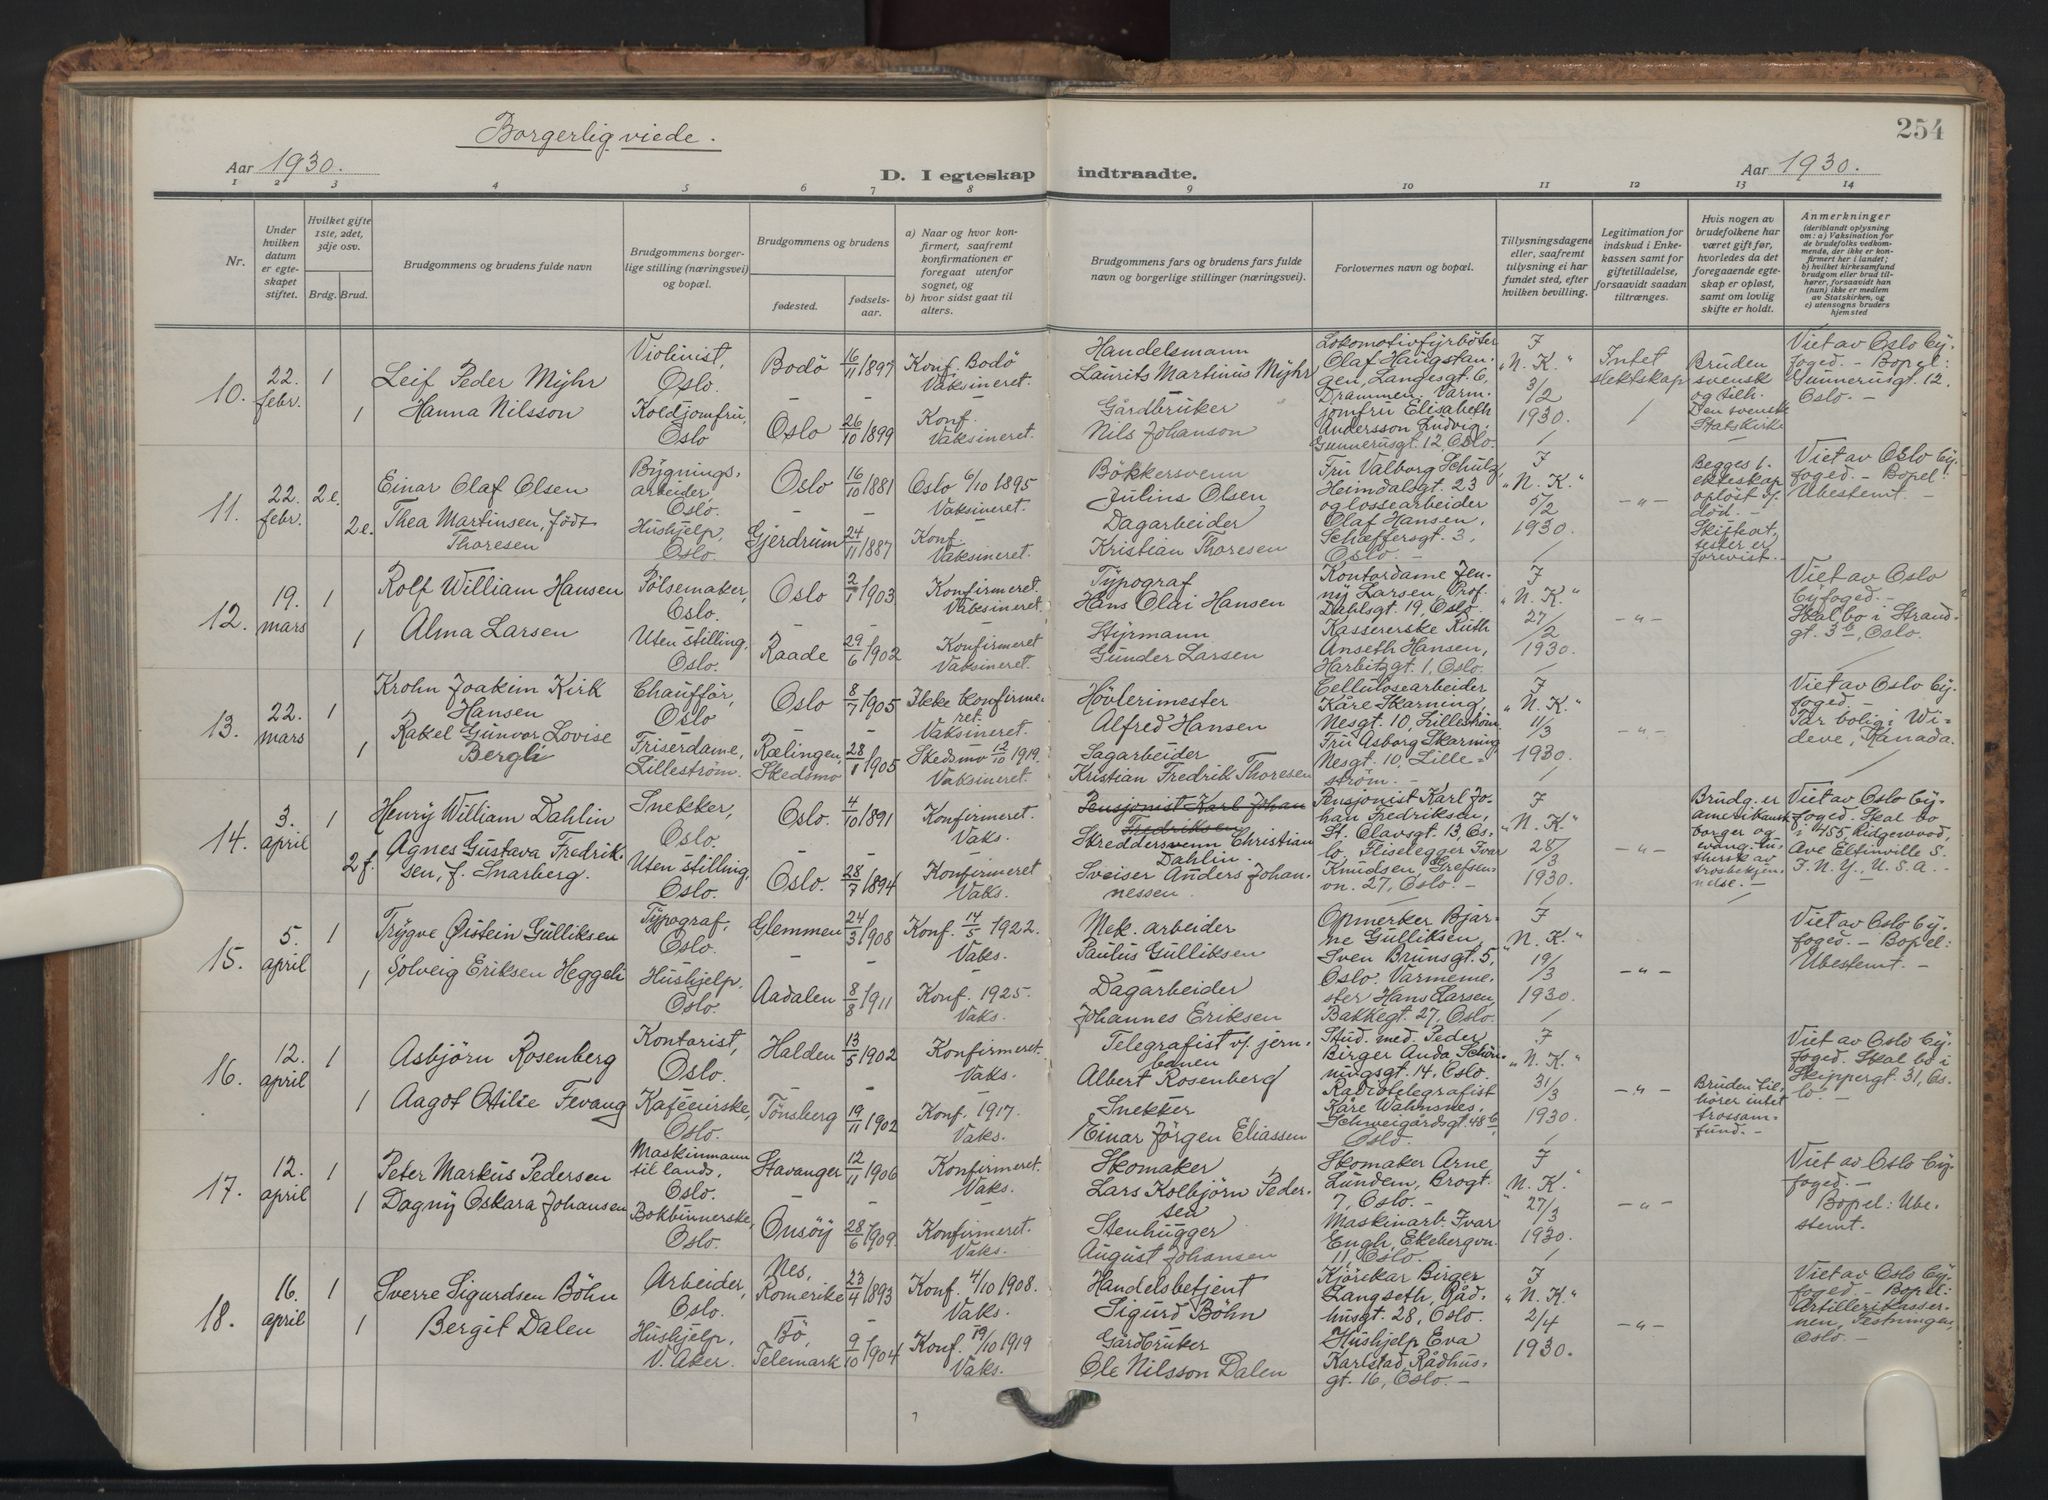 254
Borgerlig viede.
Aar 1930.
D. I egteskap indtraadte.
Aar 1930.
1 2 3 4 5 6 7 8 9 10 11 12 13 14
Nr.
Under hvilken datum er egteskapet stiftet.
Hvilket gifte 1ste, 2det, 3dje osv.
Brdg. Brud.
Brudgommens og brudens fulde navn
Brudgommens borgerlige stilling (næringsvei) og bopæl.
Brudgommens og brudens
fødested. fødselsaar.
a) Naar og hvor konfirmert, saafremt konfirmationen er foregaat utenfor sognet, og
b) hvor sidst gaat til alters.
Brudgommens fars og brudens fars fulde navn og borgerlige stillinger (næringsvei).
Forlovernes navn og bopæl.
Tillysningsdagene eller, saafremt tillysning ei har fundet sted, efter hvilken bevilling.
Legitimation for indskud i Enkekassen samt for giftetilladelse, forsaavidt saadan tiltrænges.
Hvis nogen av brudefolkene har været gift før, hvorledes da det foregaaende egteskap er opløst, samt om lovlig skifte er holdt.
Anmerkninger (deriblandt oplysning om: a) Vaksination for de brudefolks vedkommende, der ikke er konfirmert her i landet; b) hvilket kirkesamfund brudgom eller brud tilhører, forsaavidt han (hun) ikke er medlem av Statskirken, og c) utensogns bruders hjemsted
10. 22. febr. 1
Leif Peder Myhr
Violinist, Oslo.
Bodö 16/11 1897
Konf. Bodö Vaksineret.
Handelsmann Laurits Martinus Myhr
1 Hanna Nilsson
Koldjomfru, Oslo
Oslo 26/10 1899
Konf. Vaksineret.
Gårdbruker Nils Johanson
Lokomotivfyrböter Olaf Haugstangen, Langesgt. 6, Drammen, Varmjomfru Elisabeth Andersson Ludvig, Gunnerusgt. 12, Oslo.
I "N. K." 3/2 1930.
Intet slektskap
Bruden svensk og tilh. Den svenske Statskirke
Viet av Oslo Byfoged. - Bopel: Gunnerusgt. 12. Oslo. -
11. 22. febr. 2 e.
Einar Olaf Olsen
Bygningsarbeider, Oslo.
Oslo 16/10 1881
Oslo 6/10 1895 Vaksineret.
Bökkersvenn Julius Olsen
2 e. Thea Martinsen, födt Thoresen
Hushjelp, Oslo.
Gjerdrum 24/11 1887
Konf. Vaksineret.
Dagarbeider Kristian Thoresen
Fru Valborg Schulz, Heimdalsgt. 23 og lossearbeider Olaf Hansen, Schæffersgt. 3, Oslo. -
I "N. K." 5/2 1930.
- " -
Begges 1. ekteskap oplöst v. död. - Skifteattester er forevist. -
Viet av Oslo Byfoged. - Bopel: Ubestemt. -
12. 19. mars 1
Rolf William Hansen
Pölsemaker, Oslo.
Oslo 2/1 1903
Konfirmeret. Vaksineret.
Typograf Hans Olai Hansen
1 Alma Larsen
Uten stilling, Oslo.
Raade 29/6 1902
Konfirmeret Vaksineret.
Styrmann Gunder Larsen
Kontordame Jenny Larsen, Prof. Dahlsgt. 19, Oslo. Kassererske Ruth Anseth Hansen, Harbitzgt. 1, Oslo.
I "N. K." 27/2 1930.
- " -
Viet av Oslo byfoged. - Skal bo i Strandgt. 3 b, Oslo.
13. 22. mars 1
Krohn Joakim Kirk Hansen
Chaufför, Oslo
Oslo 8/7 1905
Ikke konfirmeret. Vaksineret.
Hövlerimester Alfred Hansen
1 Rakel Gunvor Lovise Bergli
Friserdame, Lilleström.
Rælingen, Skedsmo 28/1 1905
Skedsmo 12/10 1919. Vaksineret.
Sagarbeider Kristian Fredrik Thoresen
Cellulosearbeider Kåre Skarning, Nesgt. 10, Lilleström Fru Asborg Skarning Nesgt. 10, Lilleström. -
I "N. K." 11/3 1930.
- " -
Viet av Oslo Byfoged. - Tar bolig i Wideve, Kanada.
14. 3. april 1
Henry William Dahlin
Snekker, Oslo.
Oslo. 4/10 1891
Konfirmeret. Vaks.
Pensjonist Karl Johan Fredriksen
Skreddersvenn Christian Dahlin.
2 f. Agnes Gustava Fredriksen, f. Snarberg.
Uten stilling, Oslo.
Oslo. 28/7 1894
Konfirmeret Vaks.
Sveiser Anders Johannessen.
Pensjonist Karl Johan Fredriksen, St. Olavsgt. 13, Oslo. Fliselegger Ivar Knudsen, Grefsenvn. 27, Oslo. -
I "N. K." 28/3 1930.
- " -
Brudg. er amerikansk borger og evang. luthersk av trosbekjennelse. -
Viet av Oslo Byfoged. Skal bo i 455, Ridgewood, Ave Eltinville S. I. N. Y., U. S. A. -
15. 5. april 1
Trygve Øistein Gulliksen
Typograf, Oslo.
Glemmen 24/3 1908
Konf. 14/5 1922. Vaks.
Mek. arbeider Paulus Gulliksen
1 Solveig Eriksen Heggeli
Hushjelp, Oslo.
Aadalen 8/8 1911
Konf. 1925. Vaks.
Dagarbeider Johannes Eriksen
Opmerker Bjarne Gulliksen, Sven Brunsgt. 5, Oslo. Varmemester Hans Larsen, Bakkegt. 27, Oslo.
I "N. K." 19/3 1930.
- " -
Viet av Oslo Byfoged. - Bopel: Ubestemt. -
16. 12. april 1
Asbjörn Rosenberg
Kontorist, Oslo.
Halden 13/5 1902
Konfirmeret. Vaks.
Telegrafist v/ jernbanen Albert Rosenberg
1 Aagot Otilie Fevang
Kaféeierske, Oslo.
Tönsberg 19/11 1902
Konf. 1917. Vaks.
Snekker Einar Jörgen Eliassen
Stud. med. Peder Birger Anda Schöningsgt. 14, Oslo. Radiotelegrafist Kåre Wahnsnes, Schweigårdsgt. 48 b, Oslo.
I "N. K." 31/3 1930.
- " -
Bruden tilhörer intet trossamfund. -
Viet av Oslo Byfoged. Skal bo i Skippergt. 31, Oslo. -
17. 12. april 1
Peter Markus Pedersen
Maskinmann til lands, Oslo.
Stavanger 12/11 1906
Konfirmeret. Vaks.
Skomaker Lars Kolbjörn Pedersen
1 Dagny Oskara Johansen
Bokbinnerske, Oslo.
Onsöy 28/6 1909.
Konfirmeret. Vaks.
Stenhugger August Johansen
Skomaker Arne Lundem, Crogt. 7, Oslo. - Maskinarb. Ivar Engh, Ekebergvn. 11, Oslo.
I "N. K." 27/3 1930.
- " -
Viet av Oslo Byfoged. - Bopel: Ubestemt.
18. 16. april 1
Sverre Sigurdsen Böhn
Arbeider, Oslo.
Nes, Romerike 23/4 1893
Konf. 4/10 1908. Vaks.
Handelsbetjent Sigurd Böhn
1 Bergit Dalen
Hushjelp, V. Aker.
Bö, Telemark 9/10 1904
Konf. 19/10 1919 Vaks.
Gårdbruker Ole Nilsson Dalen
Kjörekar Birger Langseth, Rådhusgt. 28, Oslo. Hushjelp Eva Karlstad, Rådhusgt. 16, Oslo. -
I "N. K." 2/4 1930.
- " -
Viet av Oslo Byfoged. - Bopel: Artillerikassernen, Festningen, Oslo. -